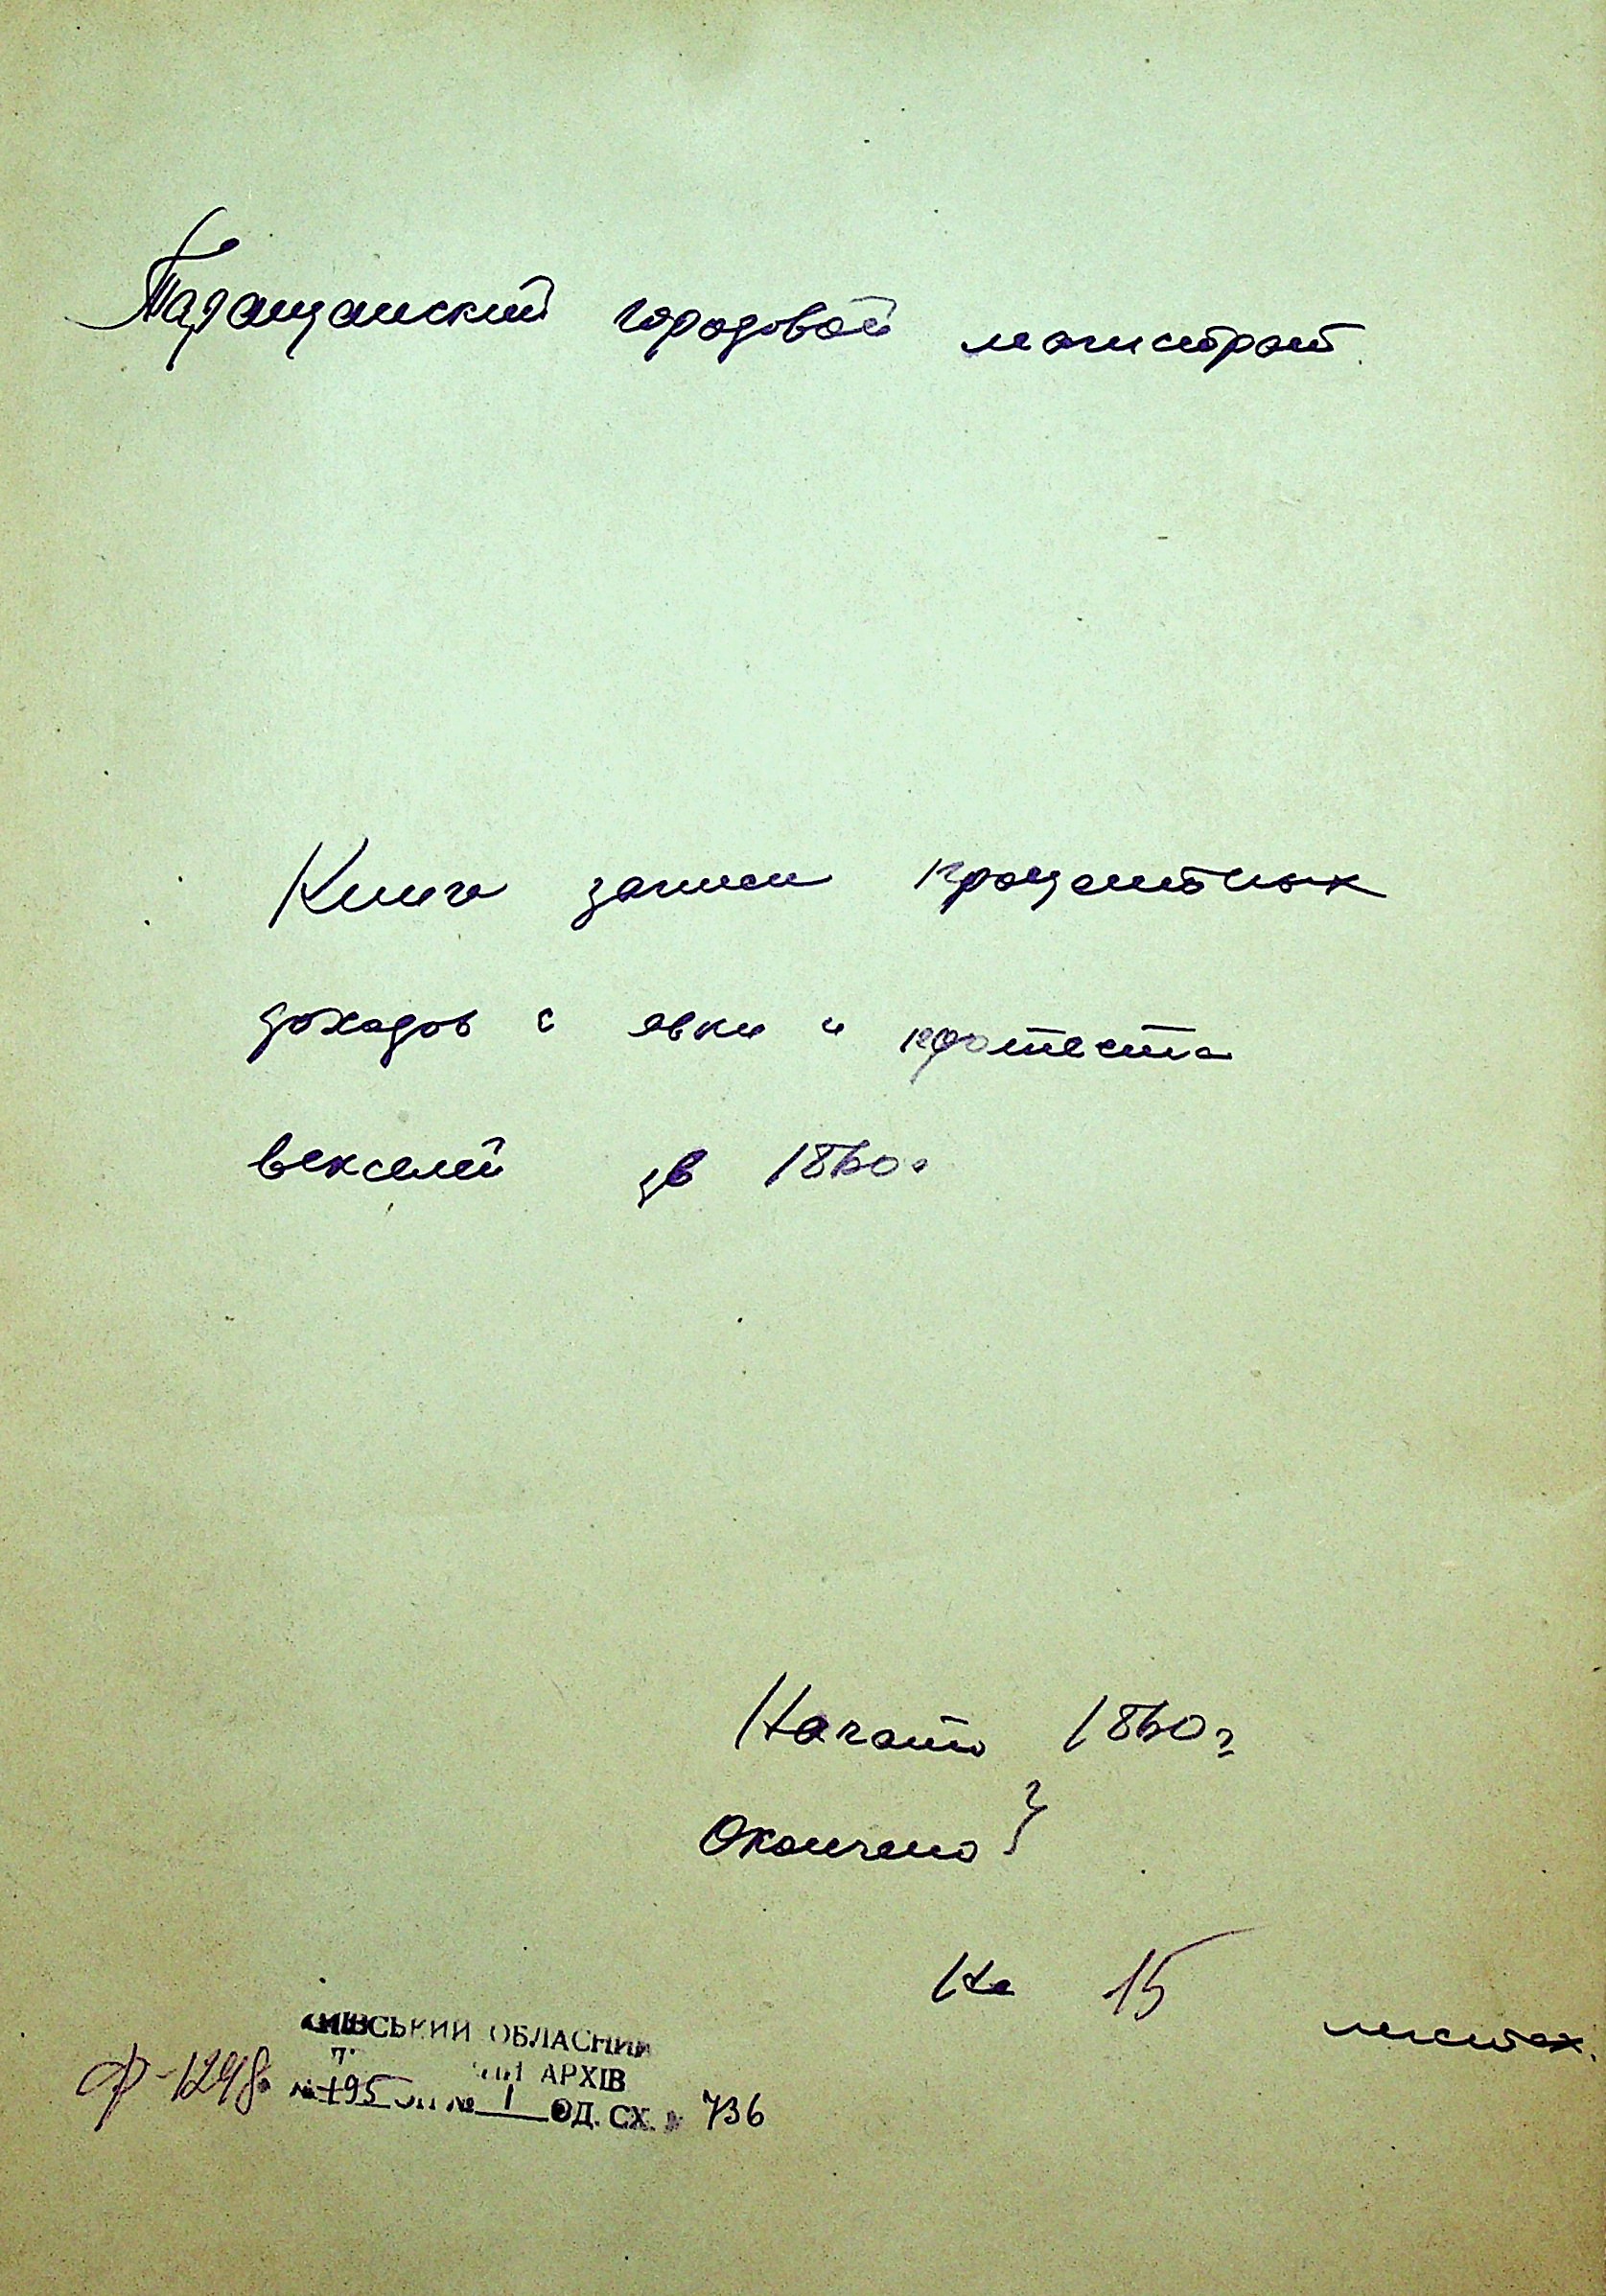 Таращанский городовой магистрат.
Книга записи процентных
доходов с явки и протеста
векселей за 1860г
Начато 1860г
Окончено }
На 15
листах.
КИЇВСЬКИЙ ОБЛАСНИЙ
АРХІВ
ф-1248 № 195 оп № 1 ОД. СХ. № 736